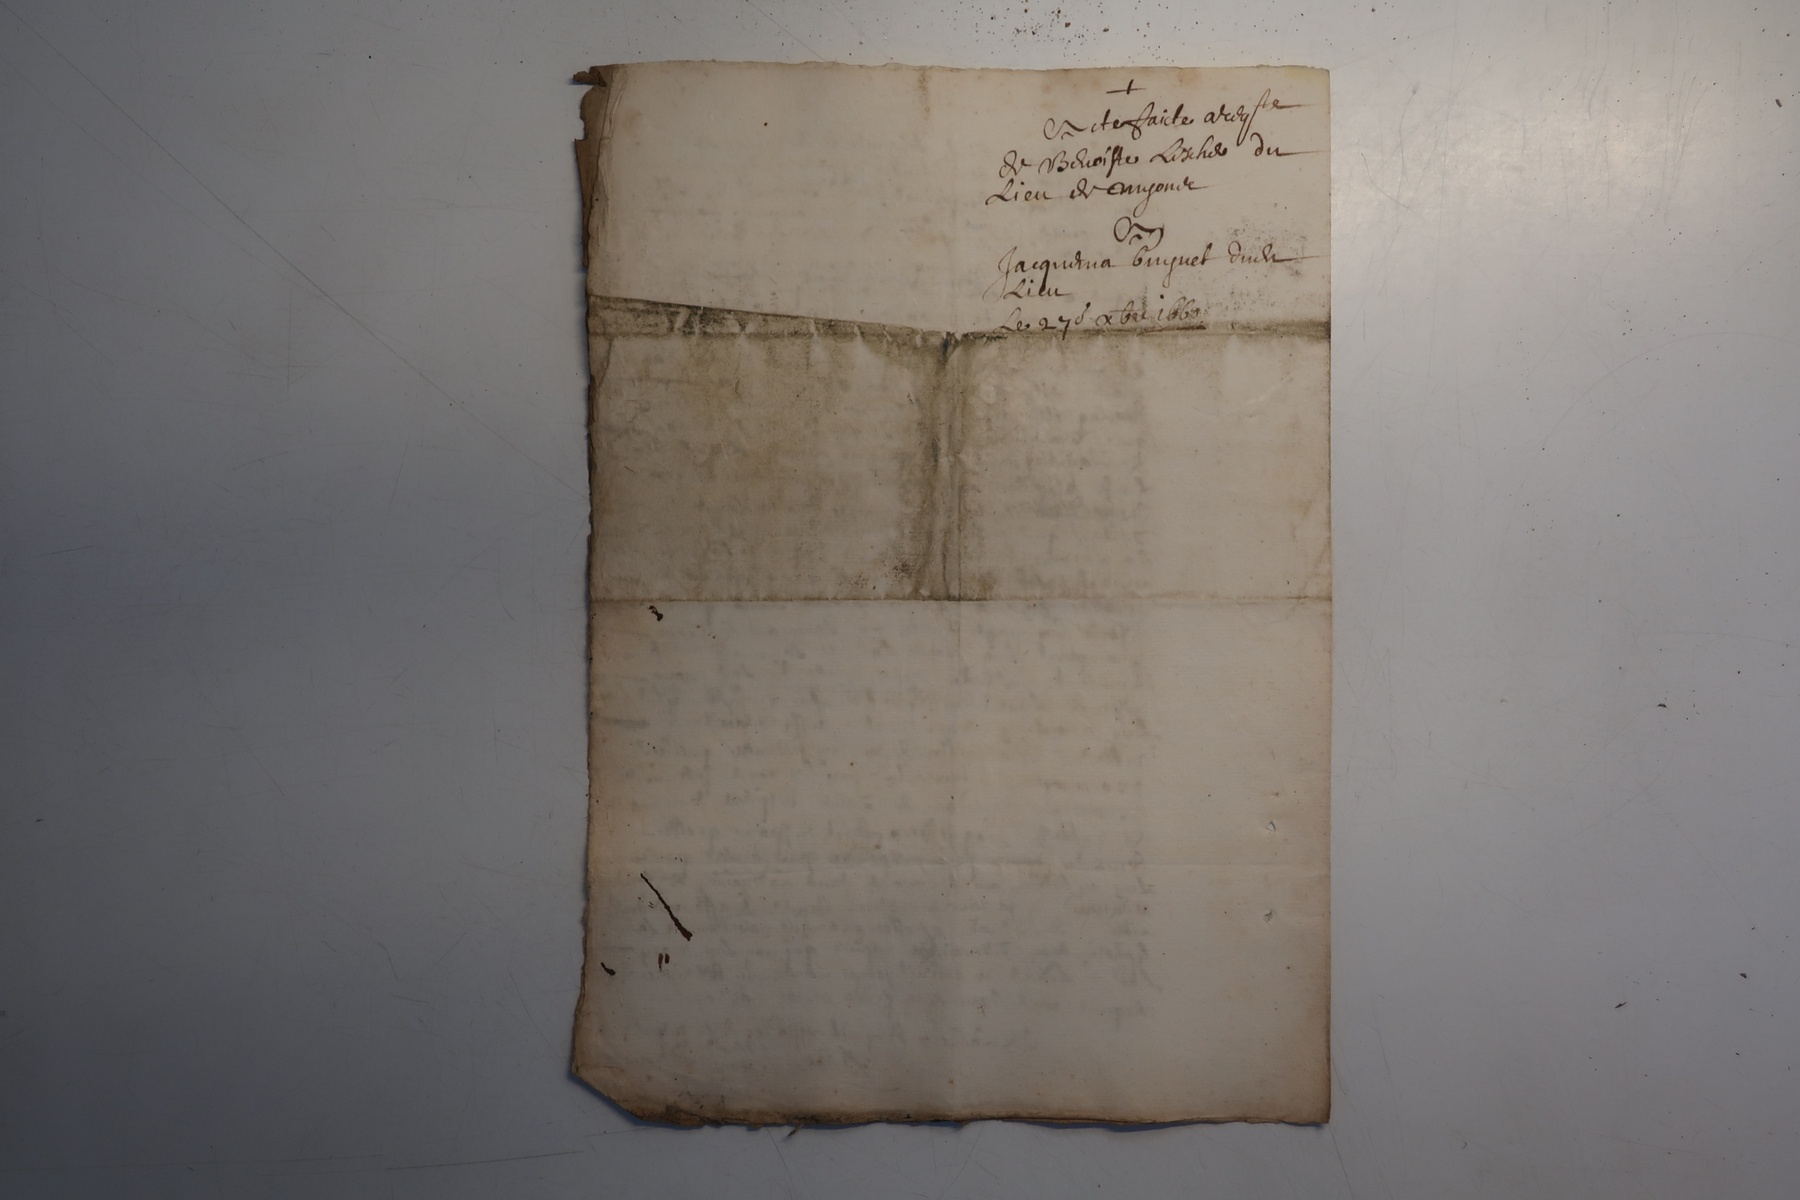 +
Acte faicte a reqste
de Benoiste Leschet du
Lieu de
Jacquema buguet dudt
Lieu
Le 27e xbre 1660